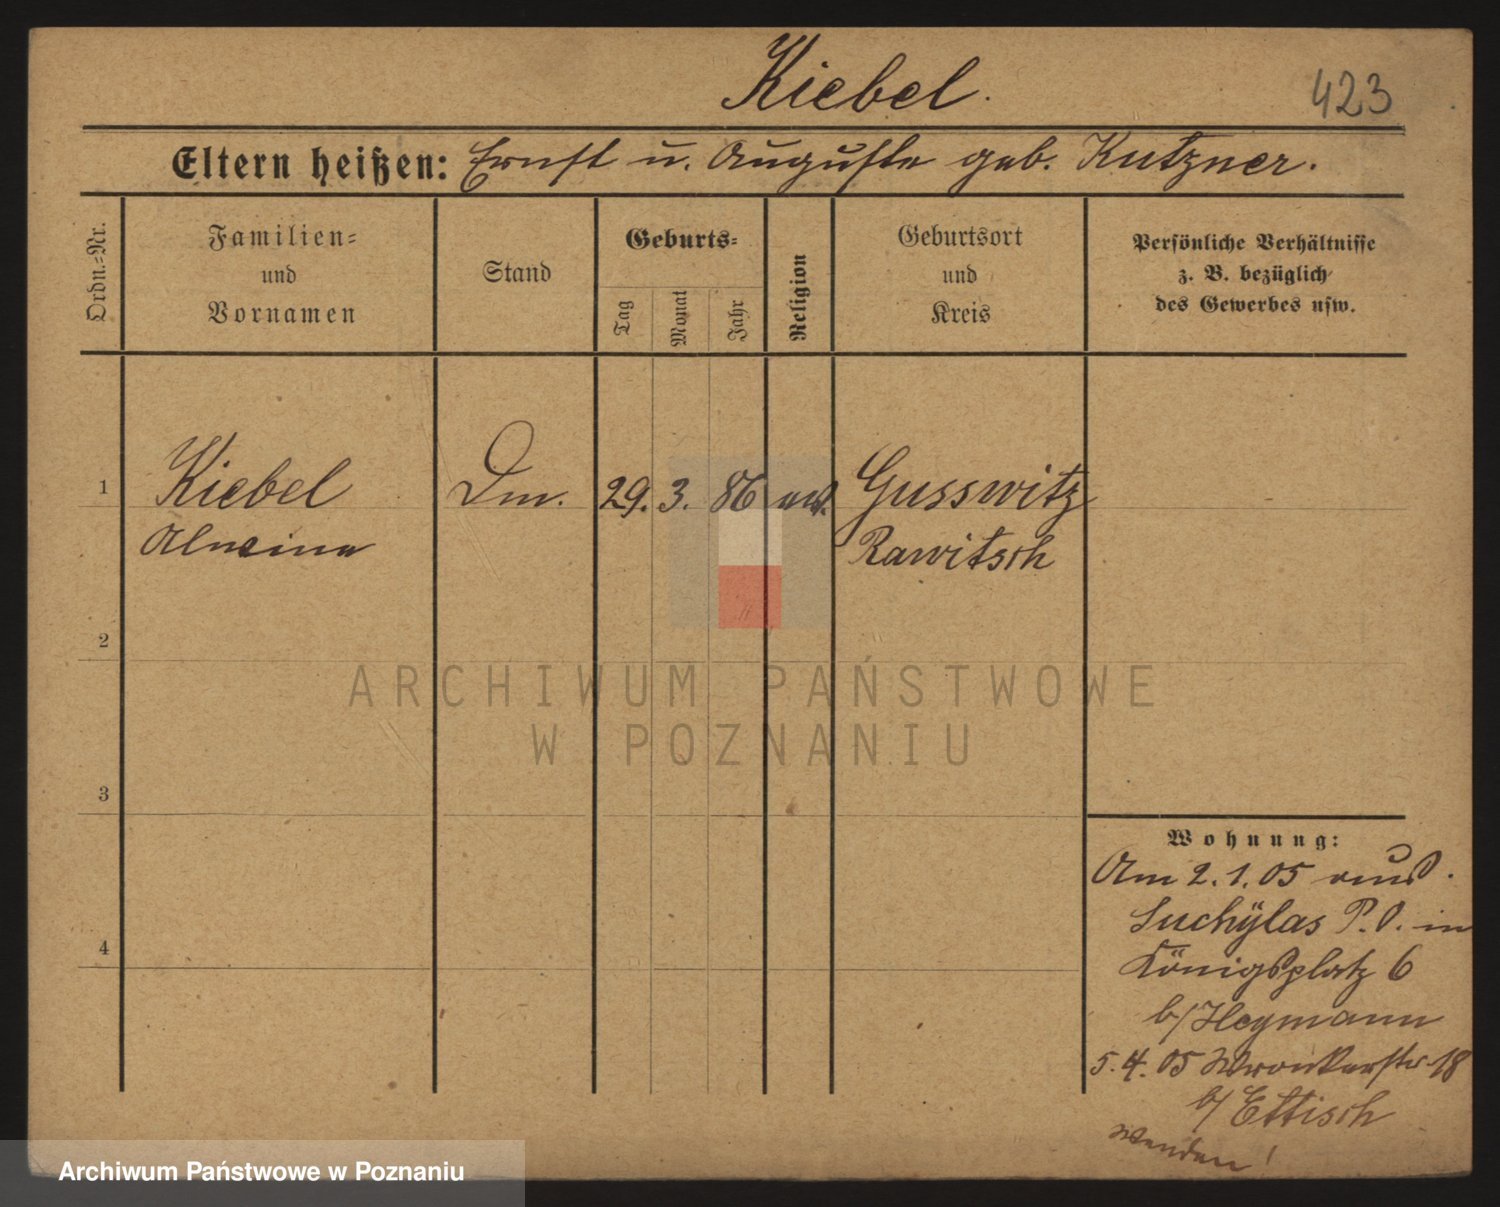 Kiebel.
423
Eltern heißen: Ernst u. Auguste geb. Kutzner.
Ordn.=Nr.
Familien=
und
Vornamen
Stand
Geburts=
Tag
Monat
Jahr
Religion
Geburtsort
und
Kreis
Persönliche Verhältnisse
z. B. bezüglich
des Gewerbes usw.
1
Kiebel
Alwine
Dm.
29. 3. 86
ev.
Gusswitz
Rawitsch
2
3
4
Wohnung:
Am 2.1.05 aus
Suchÿlas P.O. in
Königsplatz 6
b/ Hegmann
5.4.05 Wronkerstr. 18
b/ Ettisch
Wenden!
ARCHIWUM PAŃSTWOWE
W POZNANIU
Archiwum Państwowe w Poznaniu